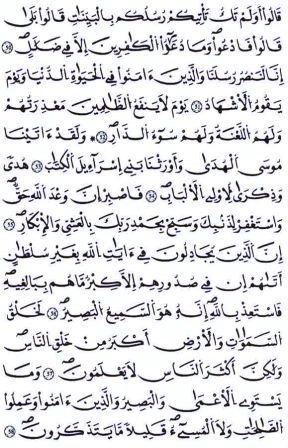 قَالُوٓا۟ أَوَلَمْ تَكُ تَأْتِيكُمْ رُسُلُكُم بِٱلْبَيِّنَٰتِ قَالُوا۟ بَلَىٰ
قَالُوا۟ فَٱدْعُوا۟ وَمَا دُعَٰٓؤُا۟ ٱلْكَٰفِرِينَ إِلَّا فِى ضَلَٰلٍ ۝٥٠
إِنَّا لَنَنصُرُ رُسُلَنَا وَٱلَّذِينَ ءَامَنُوا۟ فِى ٱلْحَيَوٰةِ ٱلدُّنْيَا وَيَوْمَ
يَقُومُ ٱلْأَشْهَٰدُ ۝٥١ يَوْمَ لَا يَنفَعُ ٱلظَّٰلِمِينَ مَعْذِرَتُهُمْ
وَلَهُمُ ٱللَّعْنَةُ وَلَهُمْ سُوٓءُ ٱلدَّارِ ۝٥٢ * وَلَقَدْ ءَاتَيْنَا
مُوسَى ٱلْهُدَىٰ وَأَوْرَثْنَا بَنِىٓ إِسْرَٰٓءِيلَ ٱلْكِتَٰبَ ۝٥٣ هُدًى
وَذِكْرَىٰ لِأُو۟لِى ٱلْأَلْبَٰبِ ۝٥٤ فَٱصْبِرْ إِنَّ وَعْدَ ٱللَّهِ حَقٌّ
وَٱسْتَغْفِرْ لِذَنۢبِكَ وَسَبِّحْ بِحَمْدِ رَبِّكَ بِٱلْعَشِىِّ وَٱلْإِبْكَٰرِ ۝٥٥
إِنَّ ٱلَّذِينَ يُجَٰدِلُونَ فِىٓ ءَايَٰتِ ٱللَّهِ بِغَيْرِ سُلْطَٰنٍ
أَتَىٰهُمْ إِن فِى صُدُورِهِمْ إِلَّا كِبْرٌ مَّا هُم بِبَٰلِغِيهِ
فَٱسْتَعِذْ بِٱللَّهِ إِنَّهُۥ هُوَ ٱلسَّمِيعُ ٱلْبَصِيرُ ۝٥٦ لَخَلْقُ
ٱلسَّمَٰوَٰتِ وَٱلْأَرْضِ أَكْبَرُ مِنْ خَلْقِ ٱلنَّاسِ
وَلَٰكِنَّ أَكْثَرَ ٱلنَّاسِ لَا يَعْلَمُونَ ۝٥٧ وَمَا
يَسْتَوِى ٱلْأَعْمَىٰ وَٱلْبَصِيرُ وَٱلَّذِينَ ءَامَنُوا۟ وَعَمِلُوا۟
ٱلصَّٰلِحَٰتِ وَلَا ٱلْمُسِىٓءُ قَلِيلًا مَّا يَتَذَكَّرُونَ ۝٥٨